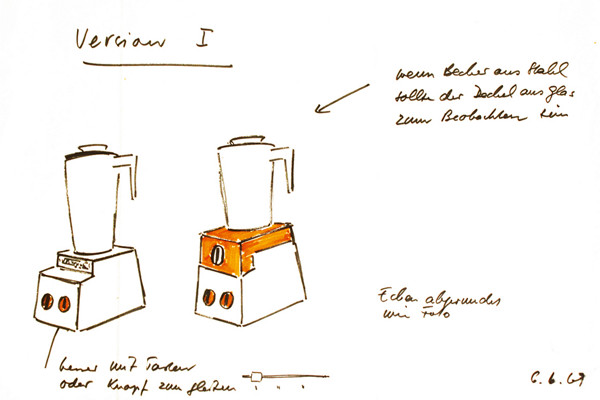 Version I
wenn Becher aus Stahl
sollte der Deckel aus Glas
zum Beobachten sein
Ecken abgerundet
wie Foto
mit Tasten
oder Knopf zum gleiten
6.6.69